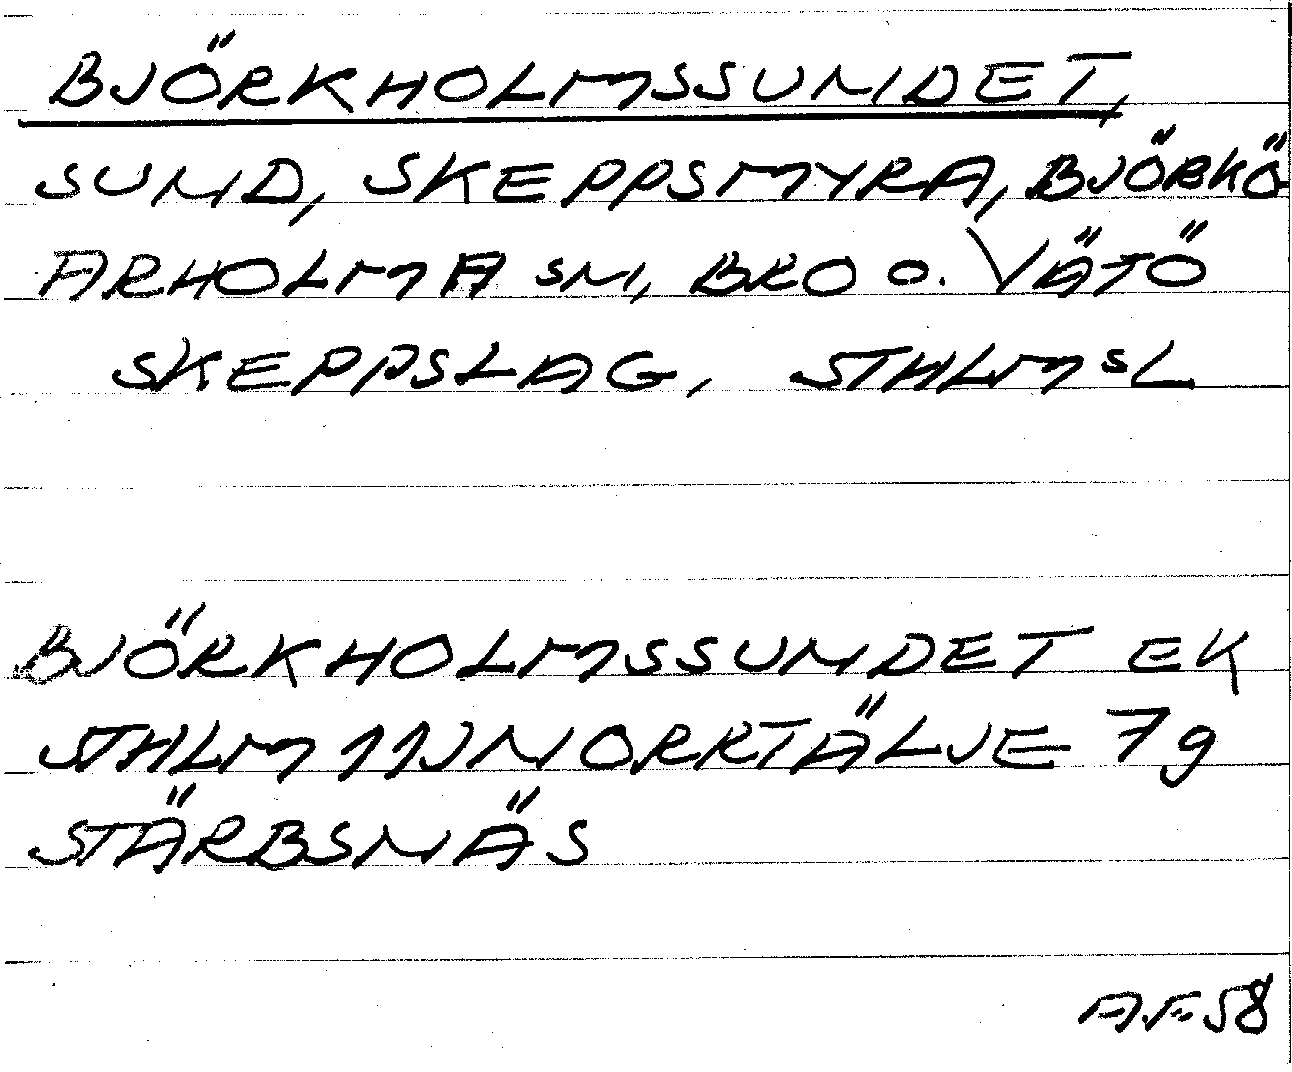 BJÖRKHOLMSSUNDET,
SUND, SKEPPSMYRA, BJÖRKÖ
ARHOLMA SN, BRO O. VÄTÖ
SKEPPSLAG, STHLMSL
BJÖRKHOLMSSUNDET EK
STHLM 11J NORRTÄLJE 7g
STÄRBSNÄS
A.F. 58